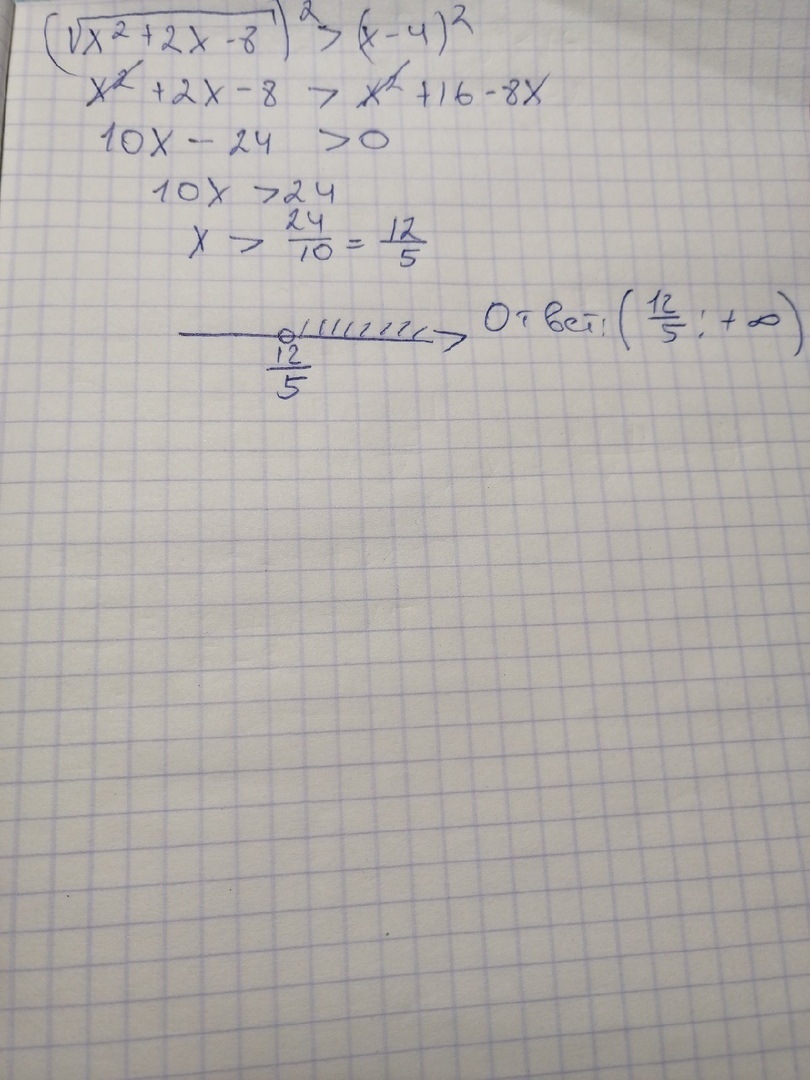 (√x² + 2x - 8)² > (x - 4)²
x² + 2x - 8 > x² + 16 - 8x
10x - 24 > 0
10x > 24
x > 24/10 = 12/5
12/5
Ответ: (12/5; +∞)